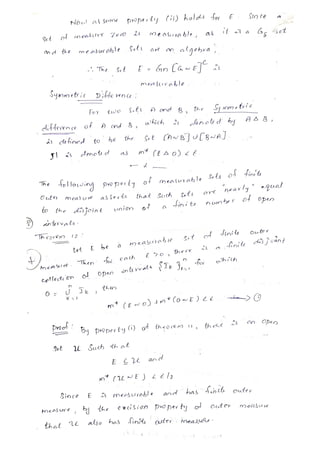 Now assume property (ii) holds for E. Since a
set of measure zero is measurable, as is a Gδ set
and the measurable sets are an algebra,
∴ The set E = G∩[G∼E]ᶜ is
measurable
Symmetric Difference:
For two sets A and B, the Symmetric
difference of A and B, which is denoted by A Δ B,
is defined to be the set (A∼B)∪[B∼A]
It is denoted as m* (E Δ O) < ε
The following property of measurable sets of finite
outer measure asserts that such sets are "nearly" equal
to the disjoint union of a finite number of open
intervals.
Theorem 12:
Let E be a measurable set of finite outer
measure. Then for each ε > 0, there is a finite disjoint
collection of open intervals {I_k}ⁿₖ₌₁ for which
O = ⋃ⁿₖ₌₁ I_k, then
m* (E∼O) + m* (O∼E) < ε → ①
Proof: By property (i) of theorem 11, there is an open
set U such that
E ⊆ U and
m* (U∼E) < ε/2
Since E is measurable and has finite outer
measure, by the excision property of outer measure
that U also has finite outer measure.